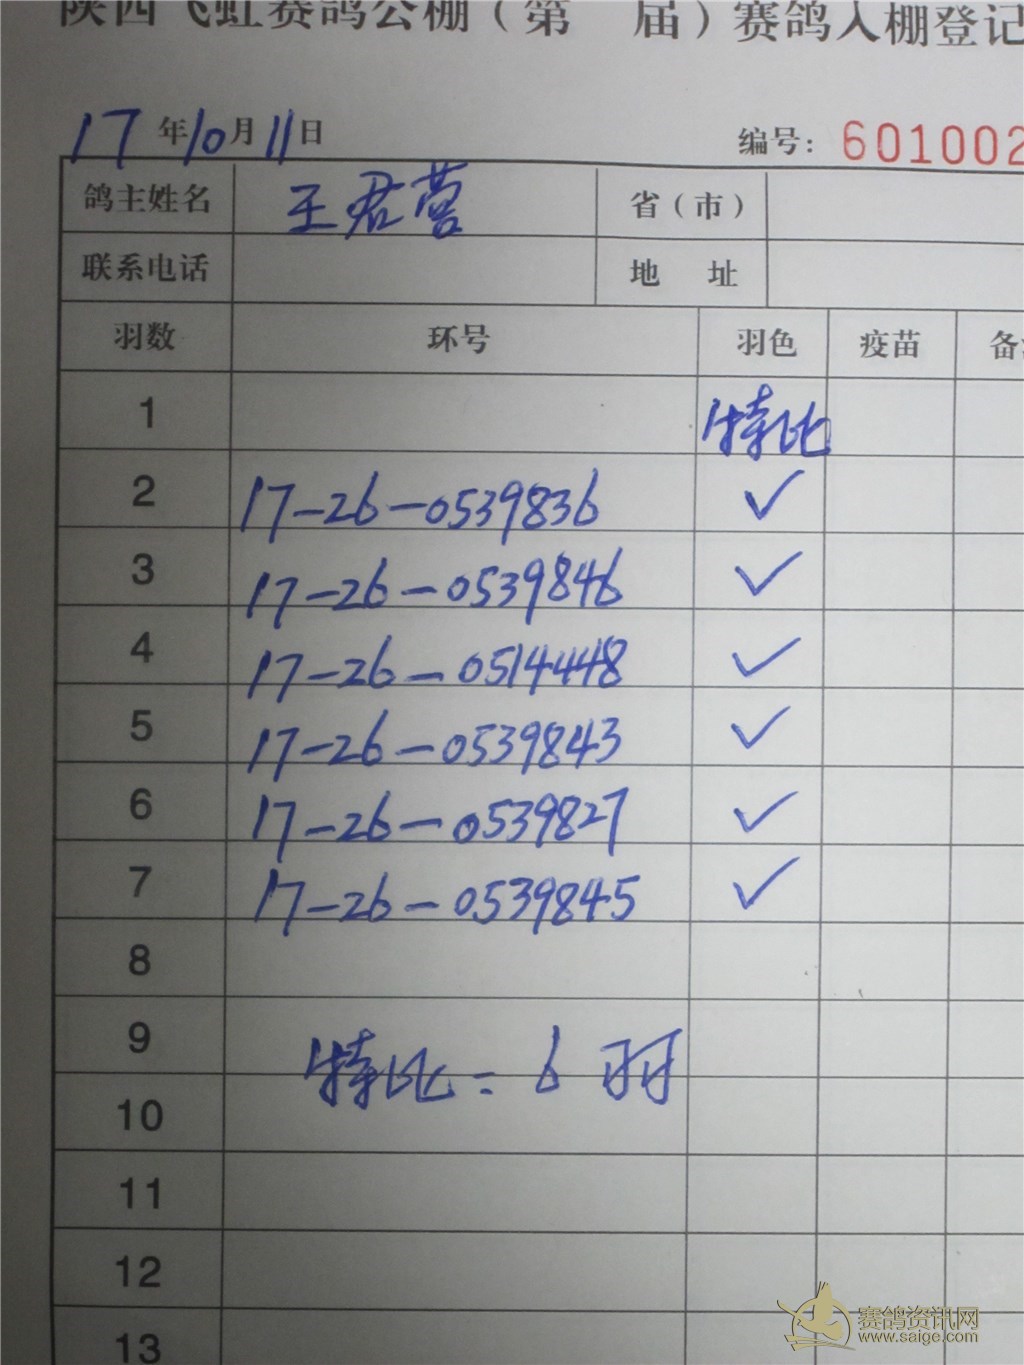 陕西飞虹赛鸽公棚（第 届）赛鸽入棚登记
17年10月11日 编号：601002
鸽主姓名 王君营 省（市）
联系电话 地 址
羽数 环号 羽色 疫苗 备
1 特比
2 17-26-0539836 ✓
3 17-26-0539846 ✓
4 17-26-0514448 ✓
5 17-26-0539843 ✓
6 17-26-0539827 ✓
7 17-26-0539845 ✓
8
9
特比=6羽
10
11
12
13
赛鸽资讯网
www.saige.com